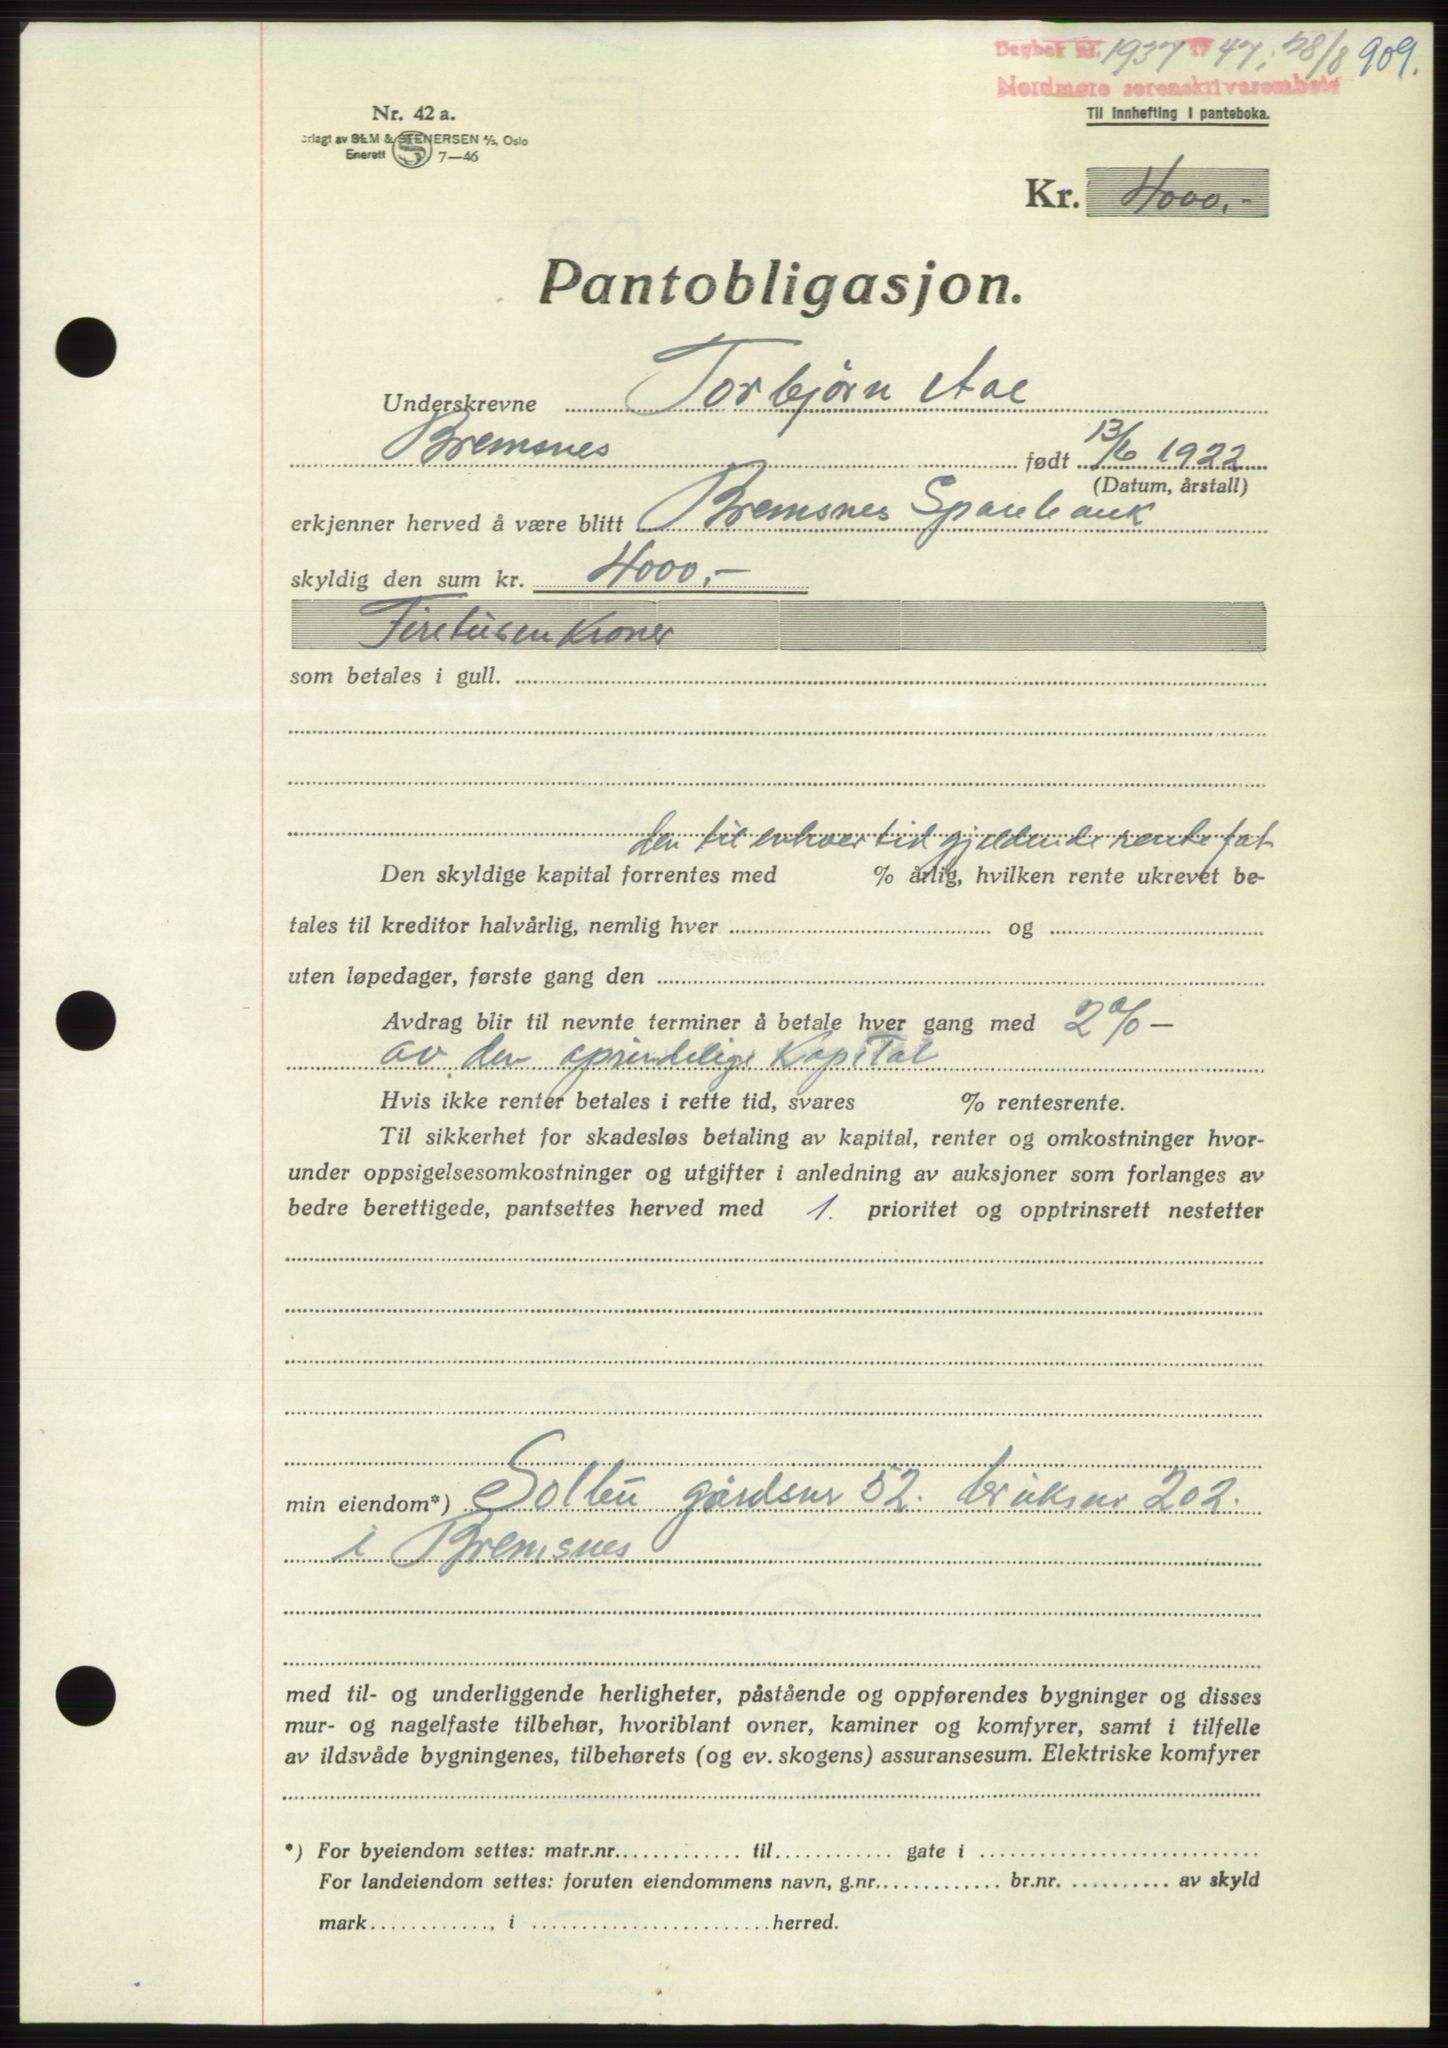 Dagbok nr. 1937 1947, 28/8 909.
Nordmøre sorenskriverembete
Nr. 42 a.
Til innhefting i panteboka.
orlagt av SEM & STENERSEN A/S, Oslo
Enerett S 7—46
Kr. 4000,-
Pantobligasjon.
Underskrevne Torbjørn Aae
Bremsnes født 13/6 1922
(Datum, årstall)
erkjenner herved å være blitt Bremsnes Sparebank
skyldig den sum kr. 4000,-
Firetusen kroner
som betales i gull.
den til enhver tid gjeldende rentefot
Den skyldige kapital forrentes med % årlig, hvilken rente ukrevet be-
tales til kreditor halvårlig, nemlig hver og
uten løpedager, første gang den
Avdrag blir til nevnte terminer å betale hver gang med 2 % —
av den oprindelige Kapital
Hvis ikke renter betales i rette tid, svares % rentesrente.
Til sikkerhet for skadesløs betaling av kapital, renter og omkostninger hvor-
under oppsigelsesomkostninger og utgifter i anledning av auksjoner som forlanges av
bedre berettigede, pantsettes herved med 1. prioritet og opptrinsrett nestetter
min eiendom*) Solbu gårdsnr 52. bruksnr 202.
i Bremsnes
med til- og underliggende herligheter, påstående og oppførendes bygninger og disses
mur- og nagelfaste tilbehør, hvoriblant ovner, kaminer og komfyrer, samt i tilfelle
av ildsvåde bygningenes, tilbehørets (og ev. skogens) assuransesum. Elektriske komfyrer
*) For byeiendom settes: matr.nr. til gate i
For landeiendom settes: foruten eiendommens navn, g.nr. br.nr. av skyld
mark , i herred.